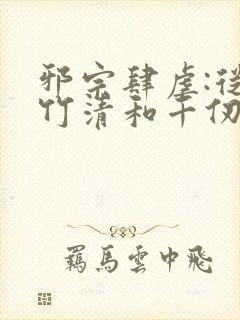 邪宗肆虐:從
竹清和千仞
羈馬雲中飛